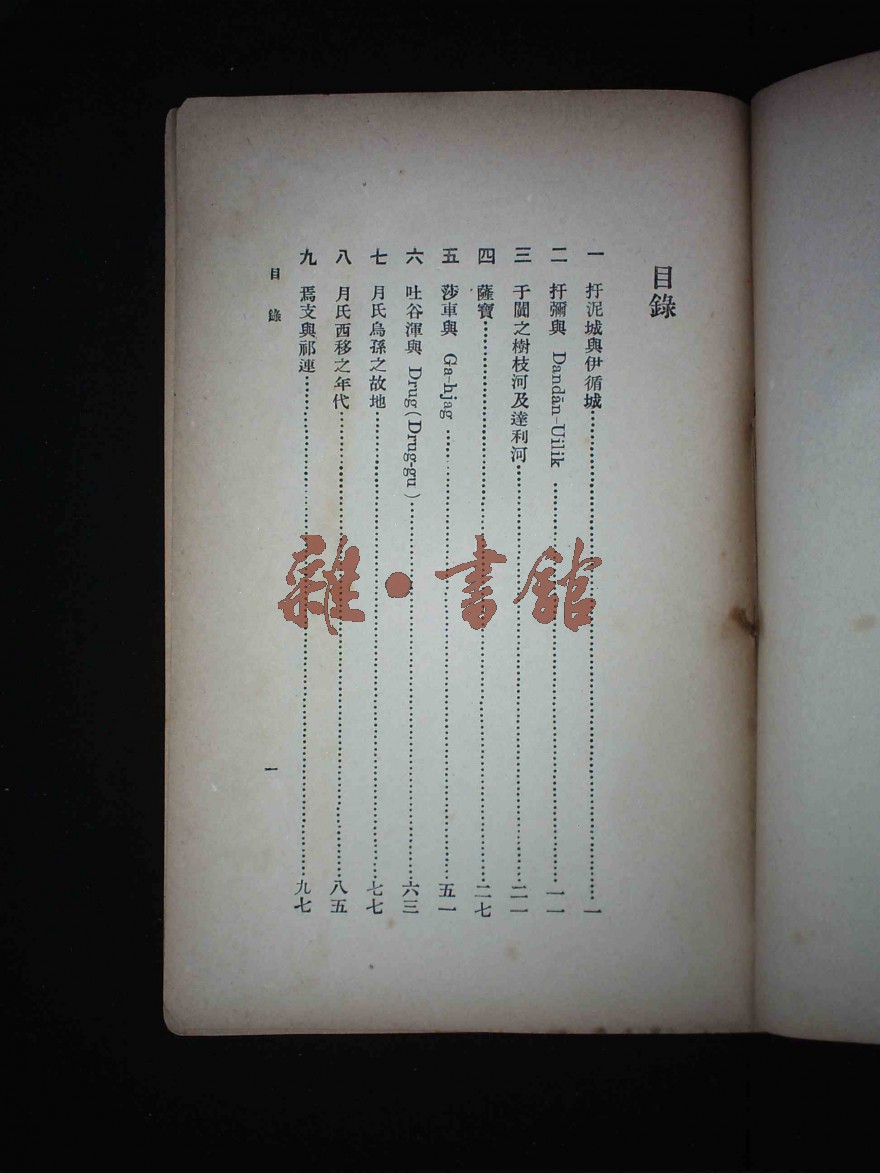 目錄
一 扜泥城與伊循城……一
二 扜彌與 Dandān-Uilik……一一
三 于闐之樹枝河及達利河……二一
四 薩寶……二七
五 莎車與 Ga-hjag……五一
六 吐谷渾與 Drug(Drug-gu)……六三
七 月氏烏孫之故地……七七
八 月氏西移之年代……八五
九 焉支與祁連……九七
目錄
一
雜·書館